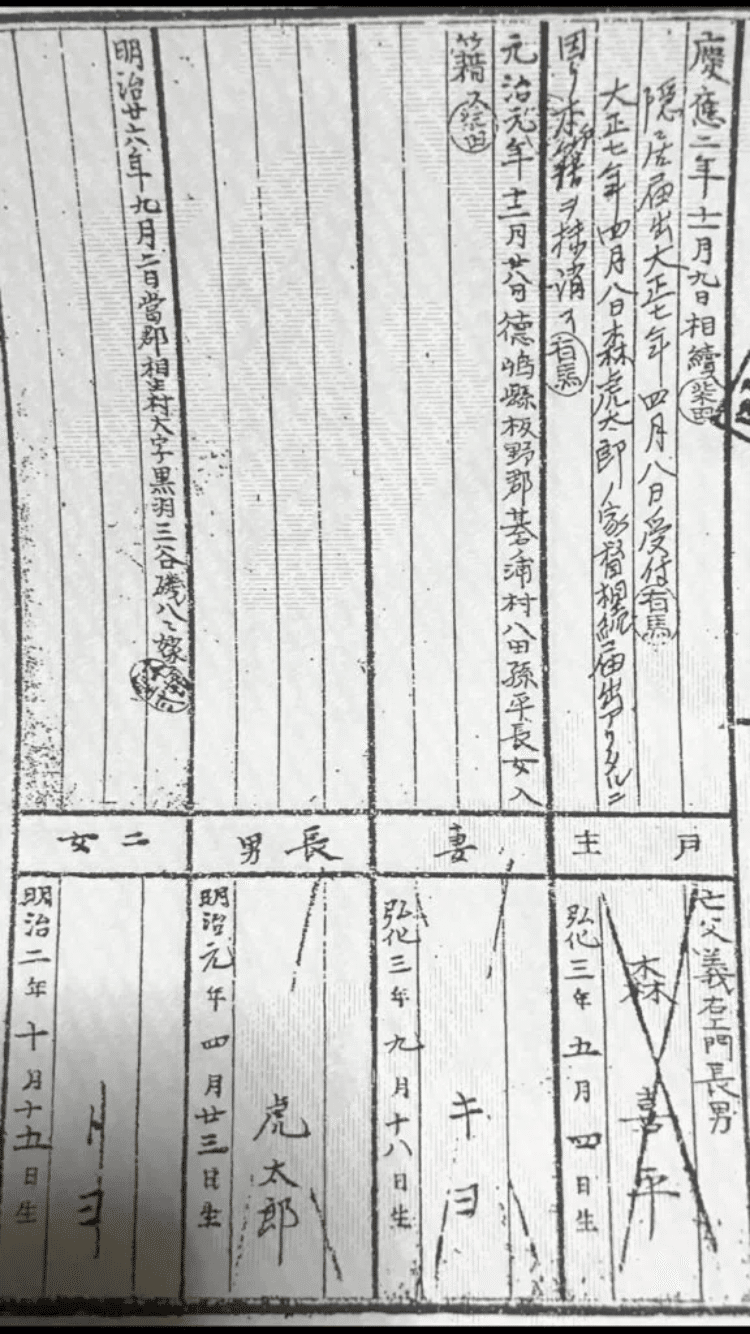 慶應二年十一月九日相續 柴田
隠居届出大正七年四月八日受付 有馬
大正七年四月八日森虎太郎ノ家督相続届出アリタルニ
因リ本戸籍ヲ抹消ス 有馬
戸主
亡父義右エ門長男
森喜平
弘化三年五月四日生
元治元年十二月廿八日德嶋縣板野郡碁浦村八田孫平長女入
籍ス 柴田
妻
キヨ
弘化三年九月十八日生
長男
虎太郎
明治元年四月廿三日生
明治廿六年九月二日當郡相生村大字黒羽三谷磯八ニ嫁ス
二女
トヨ
明治二年十月十五日生